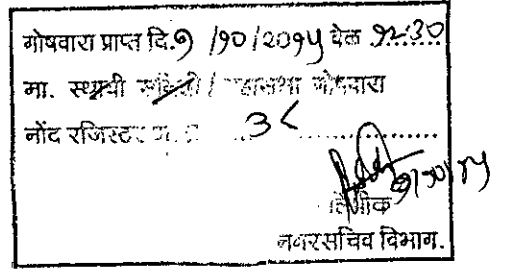 गोषवारा प्राप्त दि.१ /१०/२०१५ वेळ १२:३०
मा. स्थायी समिती / महासभा गोषवारा
नोंद रजिस्टर
३८
१/१०/१५
लिपीक
नगरसचिव विभाग.